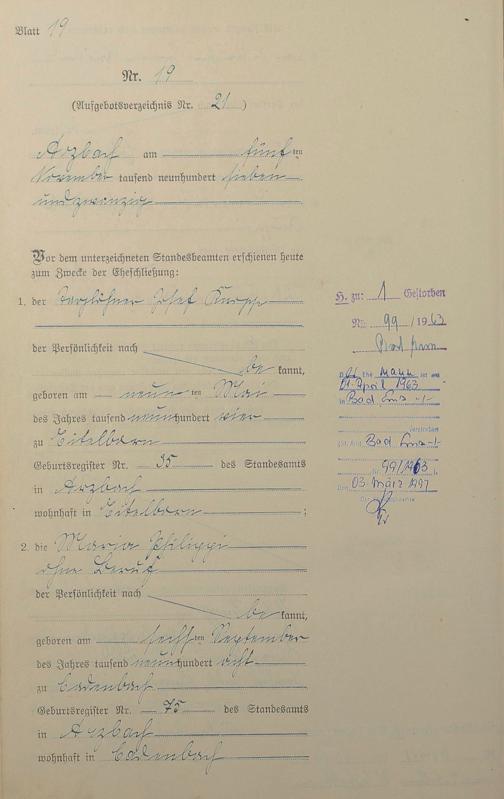 Blatt 19
Nr. 19
(Aufgebotsverzeichnis Nr. 21)
Arzbach am fünf ten
November tausend neunhundert sieben
undzwanzig
Vor dem unterzeichneten Standesbeamten erschienen heute
zum Zwecke der Eheschließung:
1. der Taglöhner Josef Knopp
der Persönlichkeit nach
be kannt,
geboren am neun ten Mai
des Jahres tausend neunhundert vier
zu Eitelborn
Geburtsregister Nr. 35 des Standesamts
in Arzbach
wohnhaft in Eitelborn ;
2. die Maria Philippi
ohne Beruf
der Persönlichkeit nach
be kannt,
geboren am sechs ten September
des Jahres tausend neunhundert acht
zu Cadenbach
Geburtsregister Nr. 75 des Standesamts
in Arzbach
wohnhaft in Cadenbach
H. zu: 1 Gestorben
Nr. 99 / 1963
Der Ehe Mann ist am
01. April 1963
in Bad Ems
verstorben
Bad Ems
Nr. 99/1963
Den 03. März 1997